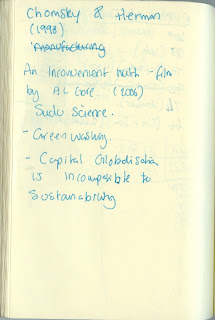 Chomsky & Herman
(1998)
Manufacturing
An Inconvenient truth - film
by Al Gore. (2006)
Sudo Science.
- Green washing.
- Capital Globalisation
is incompatible to
Sustainability